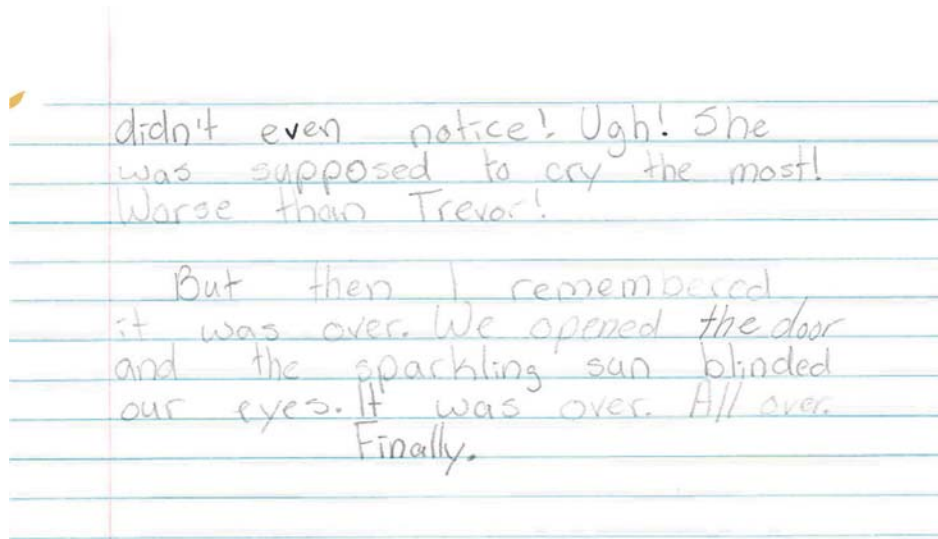 didn't even notice! Ugh! She
was supposed to cry the most!
Worse than Trevor!
But then I remembered
it was over. We opened the door
and the sparkling sun blinded
our eyes. It was over. All over.
Finally.